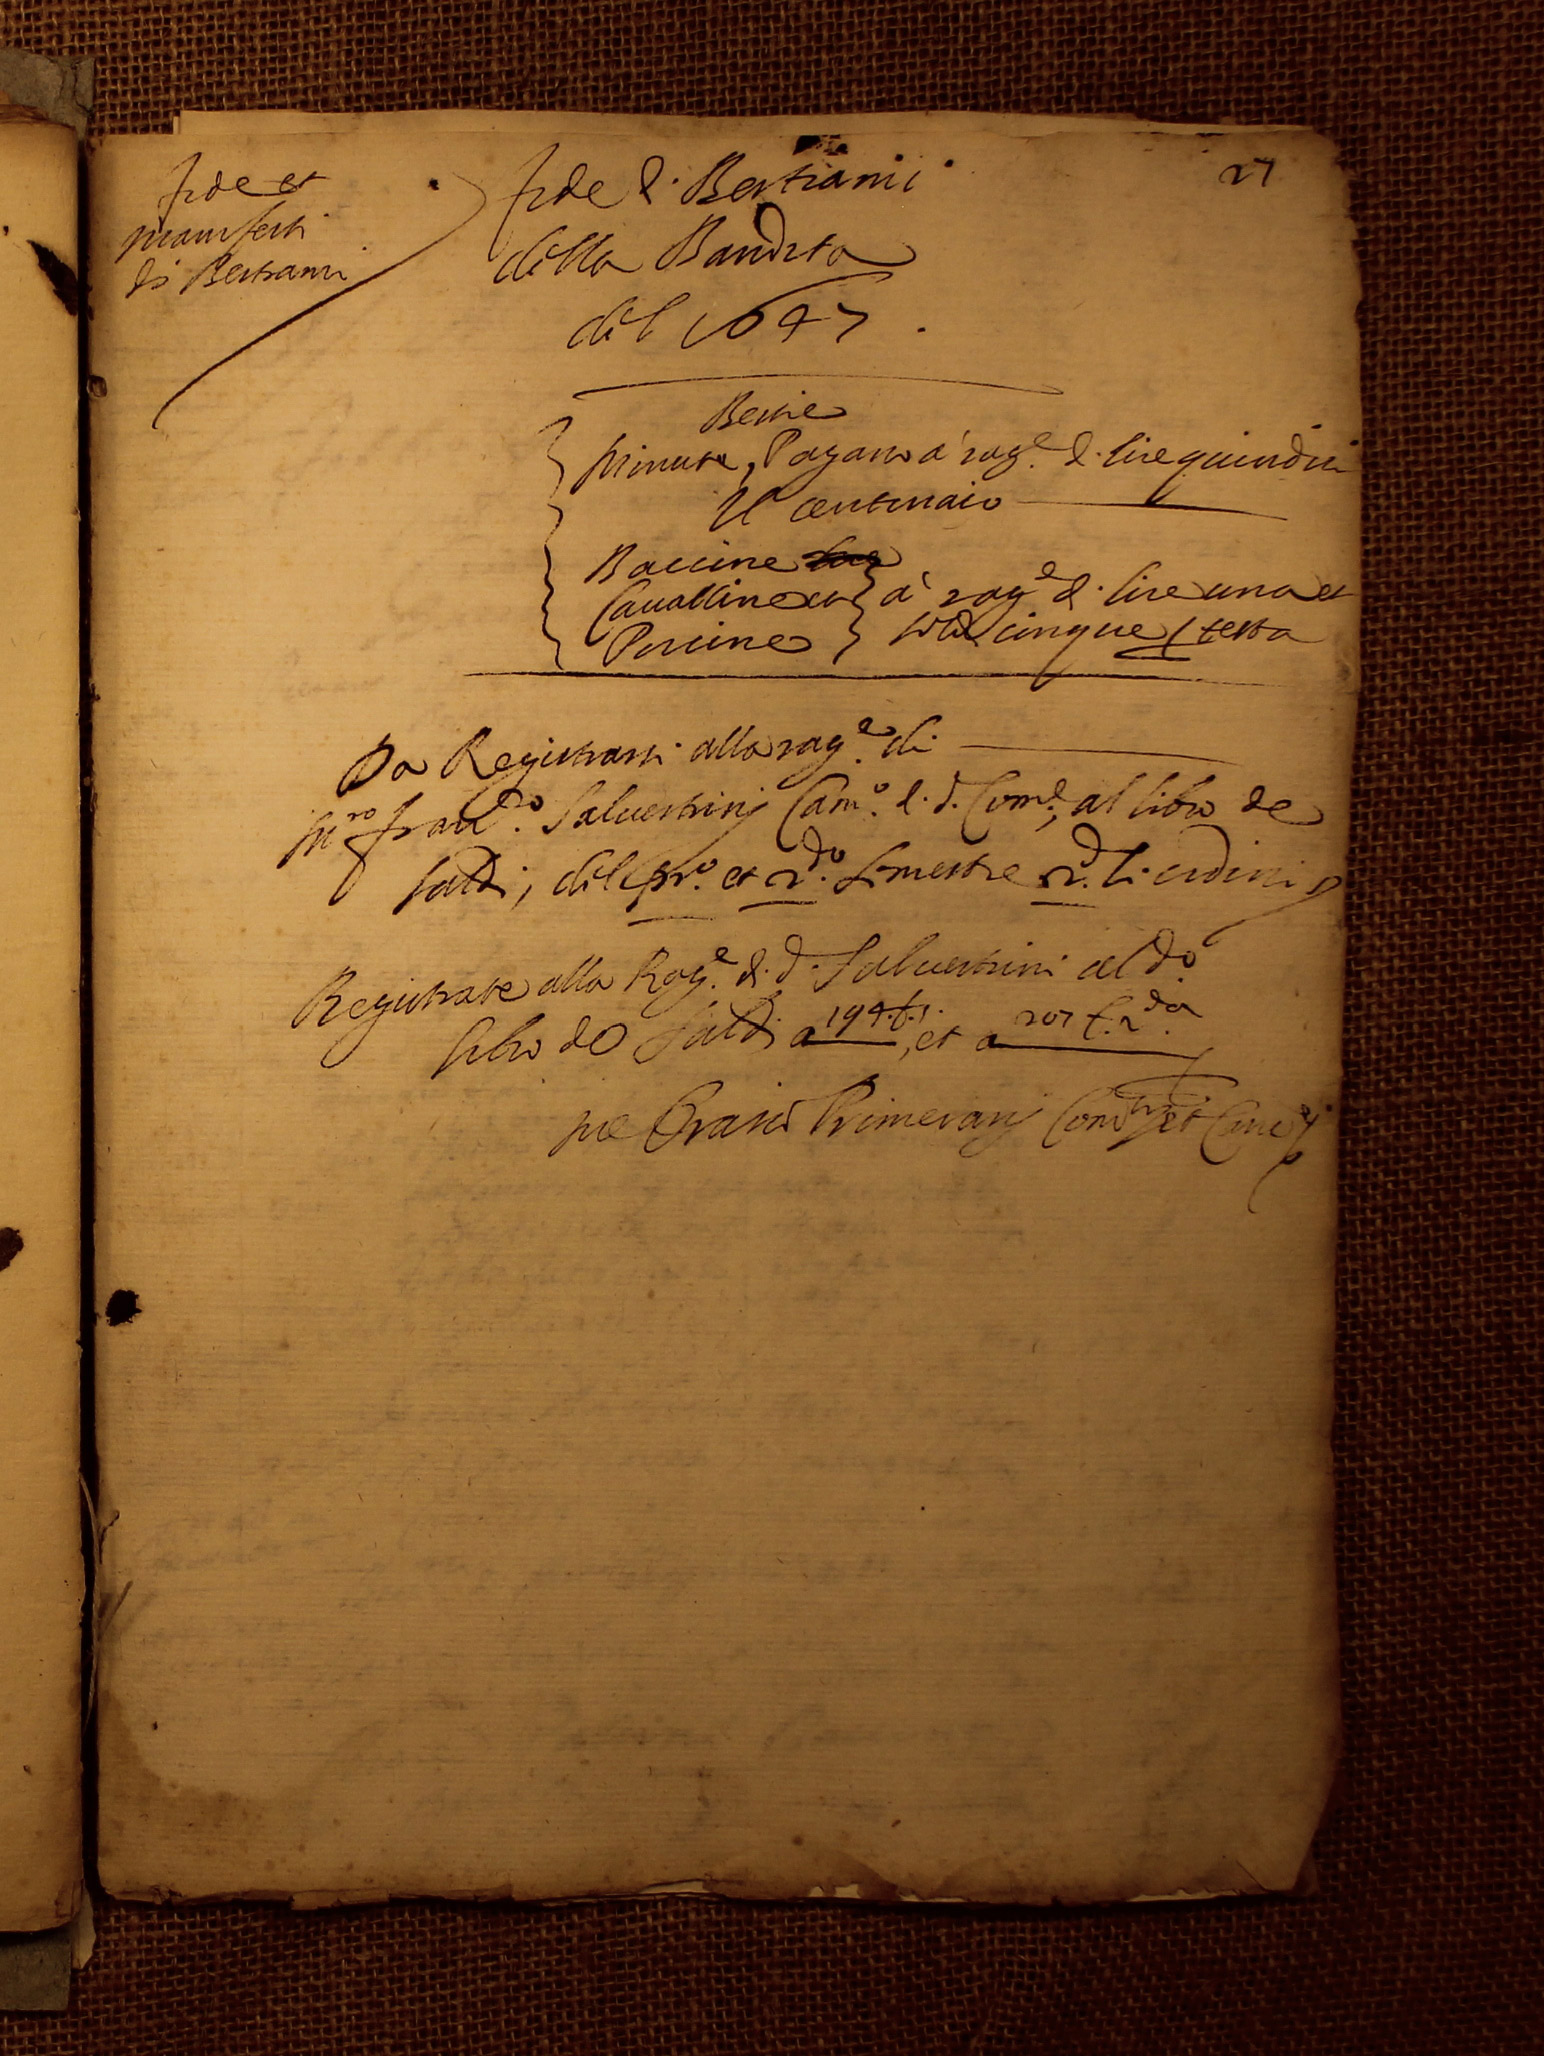 27
fede et
manifesti
di Bestiami
fede d. Bestiami
della Bandita
del 1647.
Bestie
Minute, Pagano à rag.e d. lire quindici
Il centinaio
Baccine
Cavalline et
Porcine
à rag.e d. lire una et
soldi cinque p testa
Da Registrarsi alla rag.e di
M.ro Franc.o Salvestrini Cam.o d. d. Com.e, al libro de
saldi, del pr.o et 2.do semestre
Registrate alla Rag.e d. d. Salvestrini al do
libro de saldi a 194. f. 1., et a 207 f. 2.da
Orazio Primerani et Canc.e